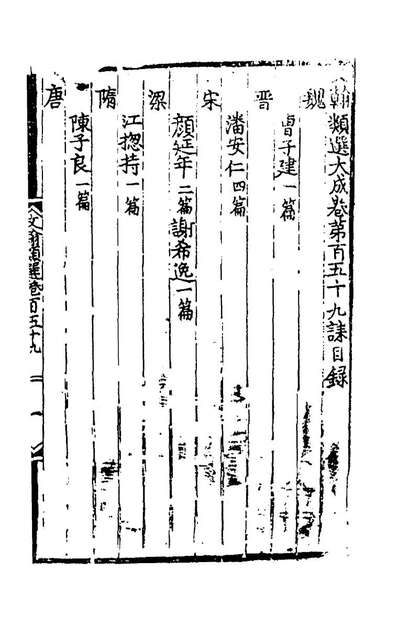 翰類選大成卷第百五十九誄目錄
魏
曹子建一篇
晉
潘安仁四篇
宋
顔延年二篇謝希逸一篇
梁
江揔持一篇
隋
陳子良一篇
唐
文翰類選卷百五十九